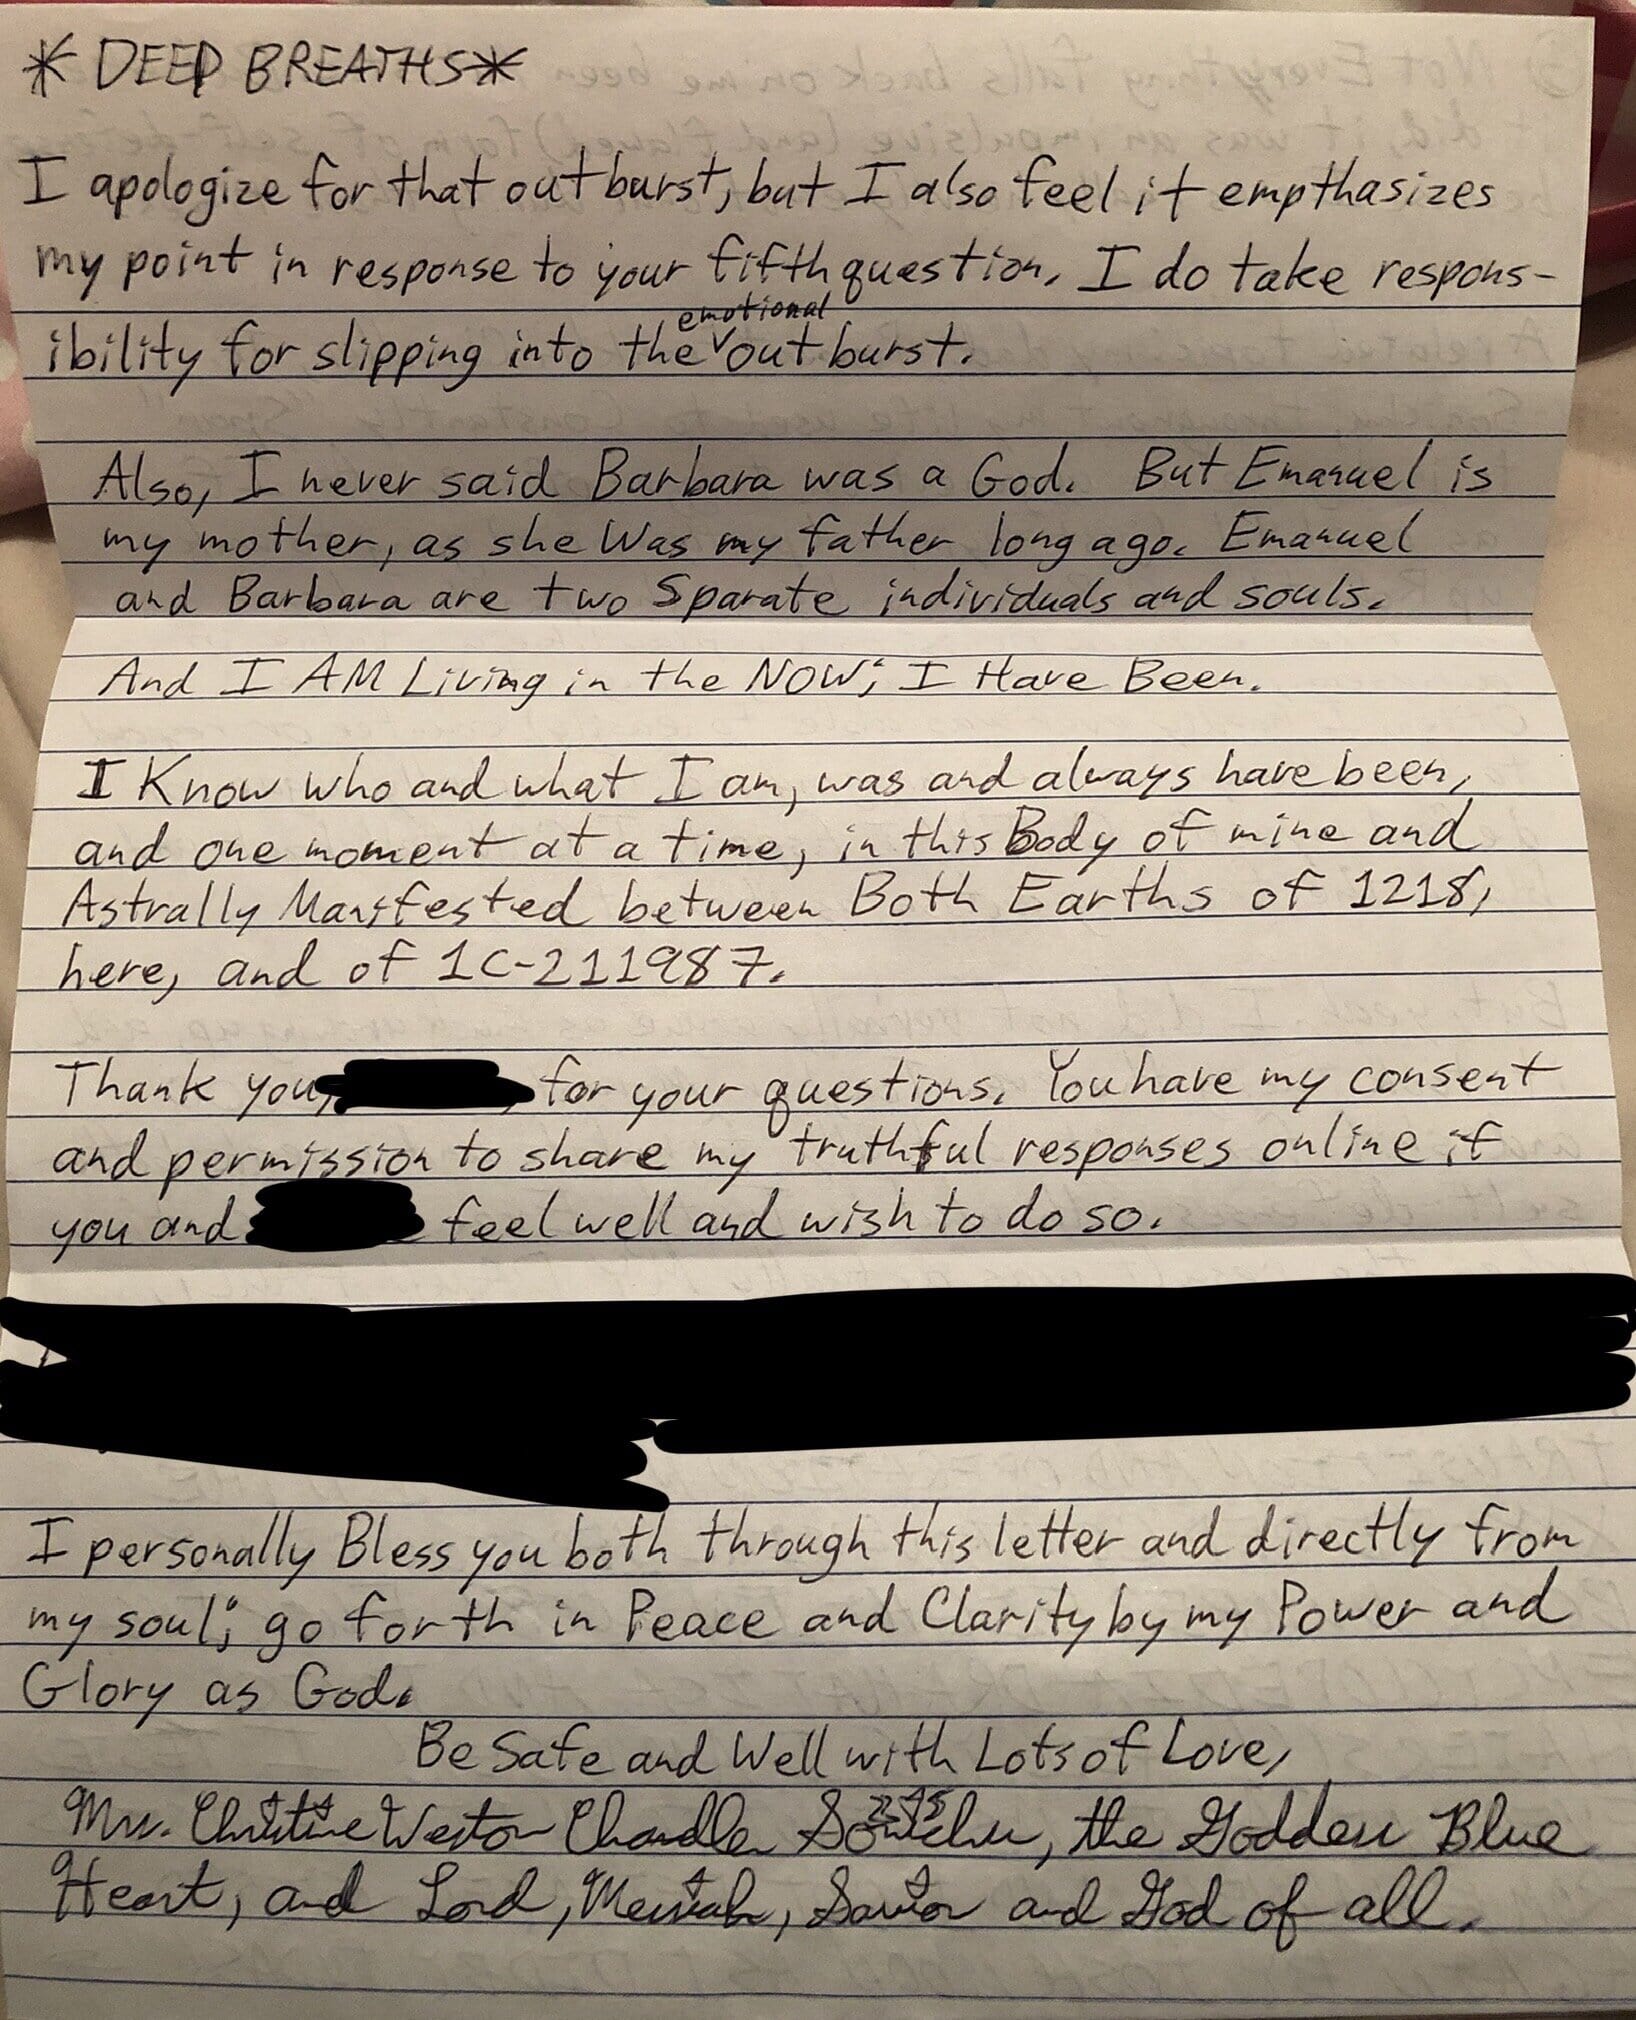 *DEEP BREATHS*
I apologize for that outburst, but I also feel it empthasizes
my point in response to your fifth question. I do take respons-
emotional
ibility for slipping into the outburst.
Also, I never said Barbara was a God. But Emanuel is
my mother, as she Was my father long ago. Emanuel
and Barbara are two Sparate individuals and souls.
And I AM Living in the NOW; I Have Been.
I Know who and what I am, was and always have been,
and one moment at a time, in this Body of mine and
Astrally Manifested between Both Earths of 1218,
here, and of 1C-211987.
Thank you, for your questions. You have my consent
and permission to share my truthful responses online if
you and feel well and wish to do so.
I personally Bless you both through this letter and directly from
my soul; go forth in Peace and Clarity by my Power and
Glory as God.
Be Safe and Well with Lots of Love,
Mrs. Christine Weston Chandler Sonichu, the Goddess Blue
Heart, and Lord, Messiah, Savior and God of all.